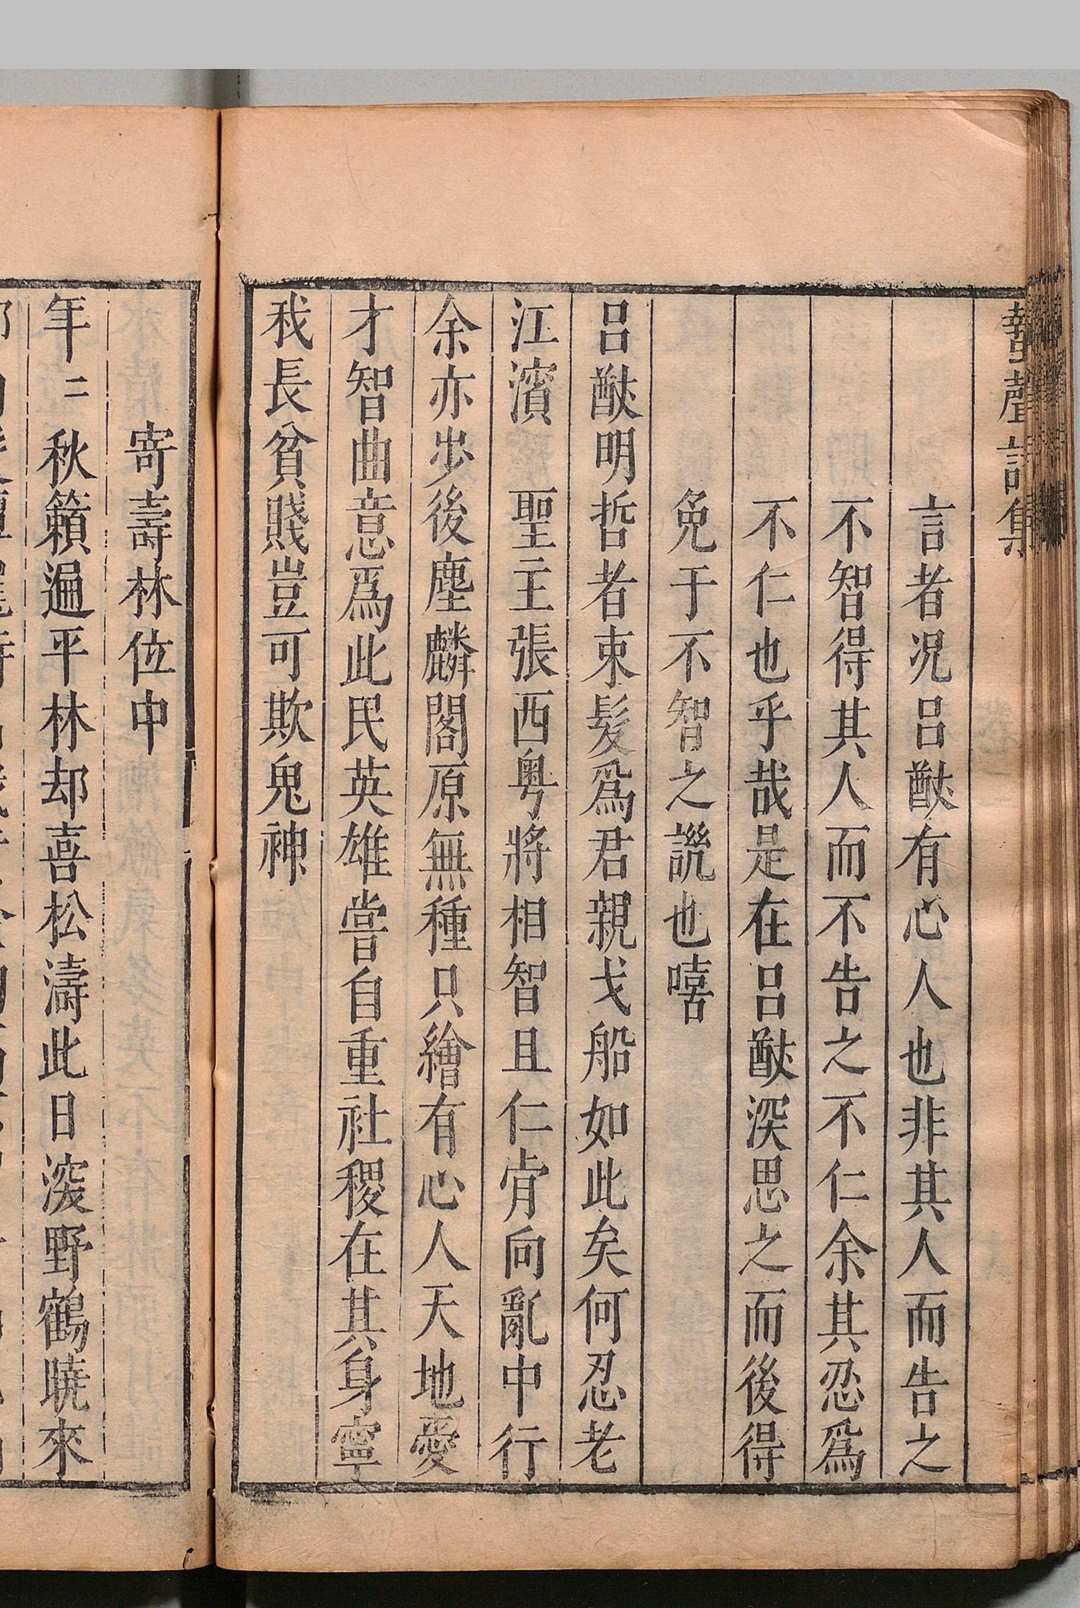 蟄聲詩集
言者況呂猷有心人也非其人而告之
不智得其人而不告之不仁余其忍爲
不仁也乎哉是在呂猷深思之而後得
免于不智之譏也嘻
呂猷明哲者束髮爲君親戈船如此矣何忍老
江濱　聖主張西粤將相智且仁肯向亂中行
余亦步後塵麟閣原無種只繪有心人天地愛
才智曲意爲此民英雄嘗自重社稷在其身寧
我長貧賤豈可欺鬼神
寄壽林位中
年二秋籟遍平林却喜松濤此日深野鶴曉來